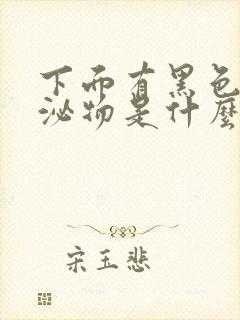 下而有黑色
泌物是什麼
宋玉悲